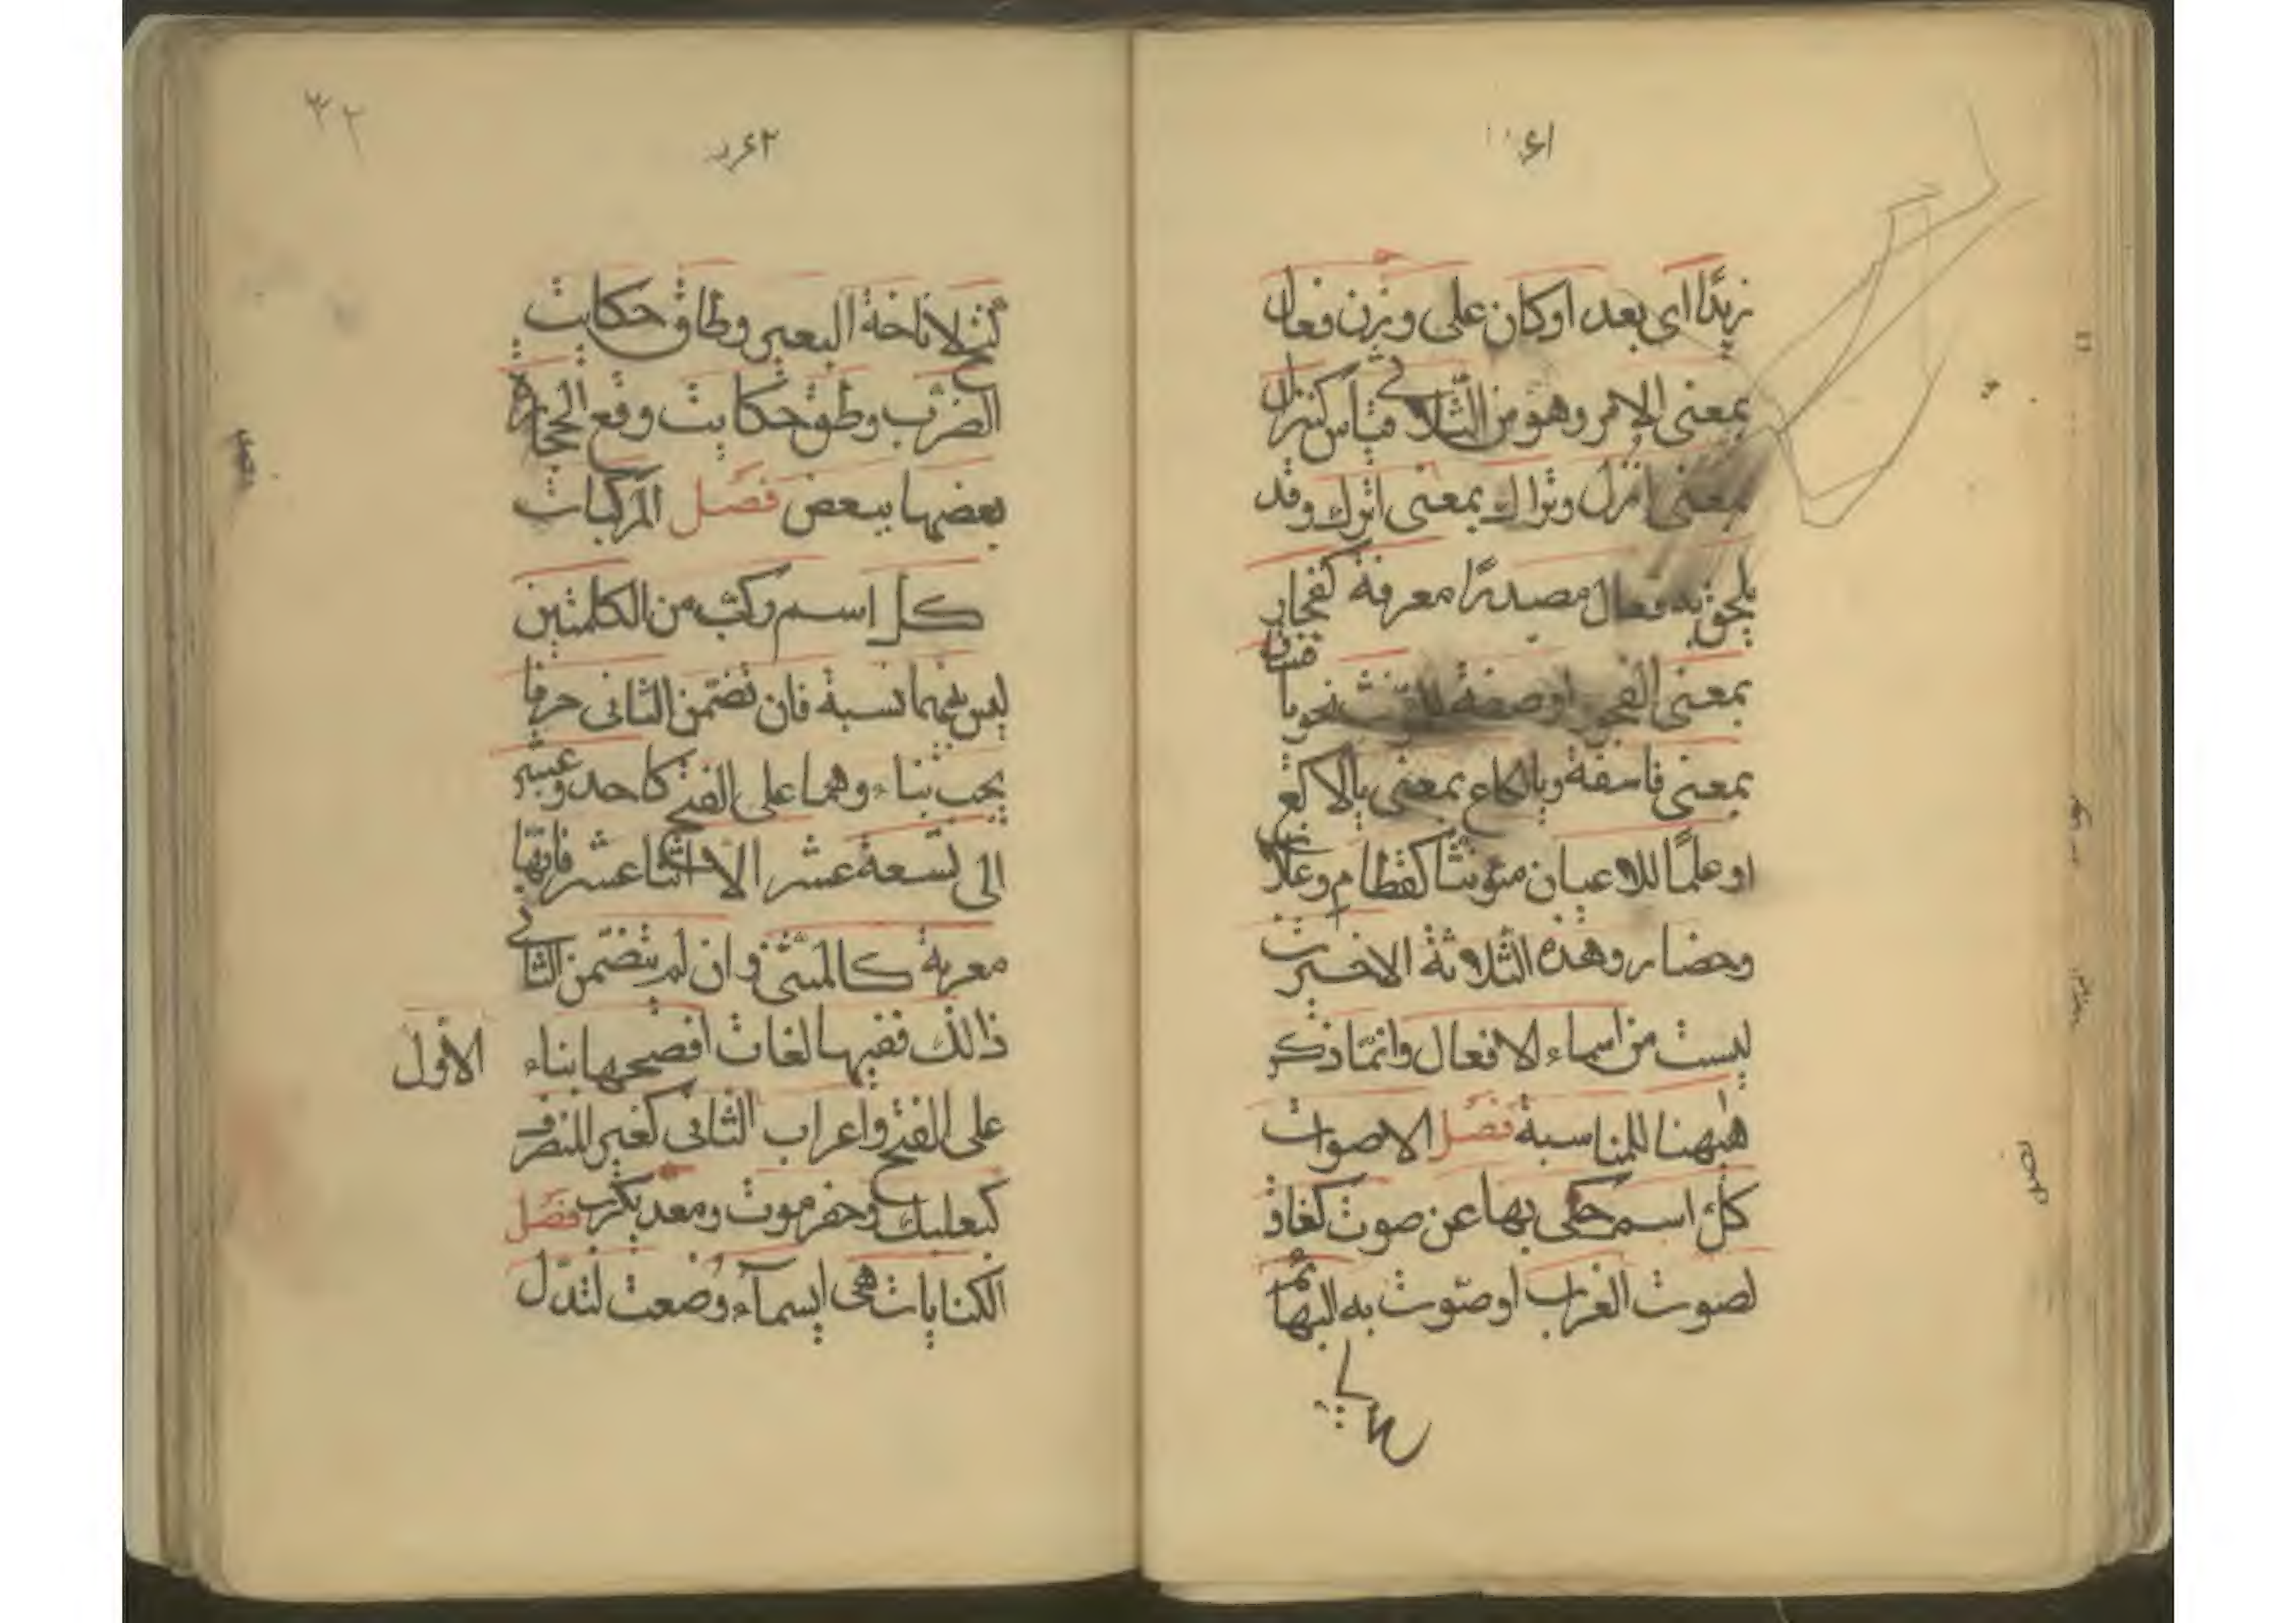 ٤١
زيدًا اى بعد اوكان على وزن فعال
بمعنى الامر وهو من الثلاثى قياس كنزال
بمعنى انزل وتراك بمعنى اترك وقد
يلحق به فعال مصدرًا معرفة كفجار
بمعنى الفجور اوصفة للمؤنث نحو يا فساق
بمعنى فاسقة ويالكاع بمعنى يالاكع
او علمًا للاعيان مؤنثا كقطام وغلاب
وحضار وهذه الثلاثة الاخيرت
ليست من اسماء الافعال وانمّا ذكر
هٰيهنا للمناسبة فصل الاصوات
كلّ اسم حكى بها عن صوت كغاق
لصوت الغراب اوصّوت به البهائم
٤٢
٣٢
كنخ لاناخة البعير وطاق حكايت
الضرب وطق حكايت وقع الحجارة
بعضها ببعض فصل المركبات
كل اسم ركّب من الكلمتين
ليس بينهما نسبة فان تضمّن الثانى حرفا
يجب بناءوهما على الفتح كاحد وعشر
الى تسعة عشر الا اثنا عشر فانّها
معربة كالمثنّى وان لم يتضمّن الثانى
ذالك ففيها لغات افصحها بناء الاوّل
على الفتح واعراب الثانى كغير المنصرف
كبعلبك وحضرموت ومعديكرب فصل
الكنايات هى اسمآء وضعت لتدّل